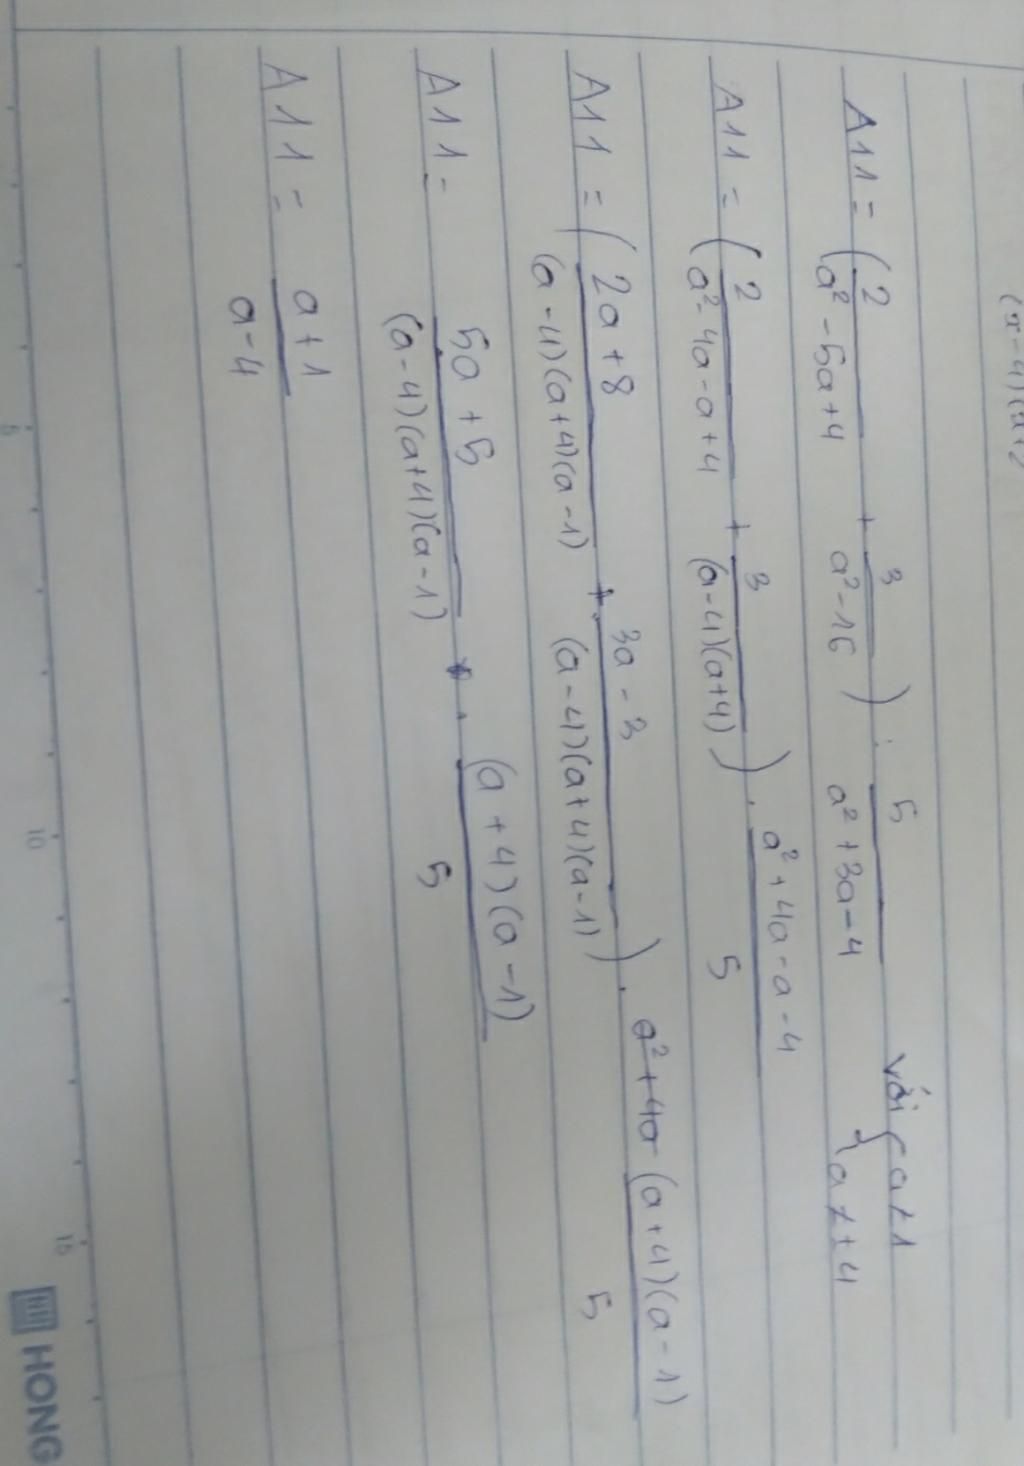 (x-4)(x+2
A11 = (2/(a² - 5a + 4) + 3/(a² - 16)) : 5/(a² + 3a - 4) với { a ≠ 1
a ≠ ±4
A11 = (2/(a² - 4a - a + 4) + 3/((a-4)(a+4))) . (a² + 4a - a - 4)/5
A11 = ((2a + 8)/((a - 4)(a + 4)(a - 1)) + (3a - 3)/((a - 4)(a + 4)(a - 1))) . (a + 4)(a - 1)/5
A11 = (5a + 5)/((a - 4)(a + 4)(a - 1)) . (a + 4)(a - 1)/5
A11 = (a + 1)/(a - 4)
5 10 15 HONG